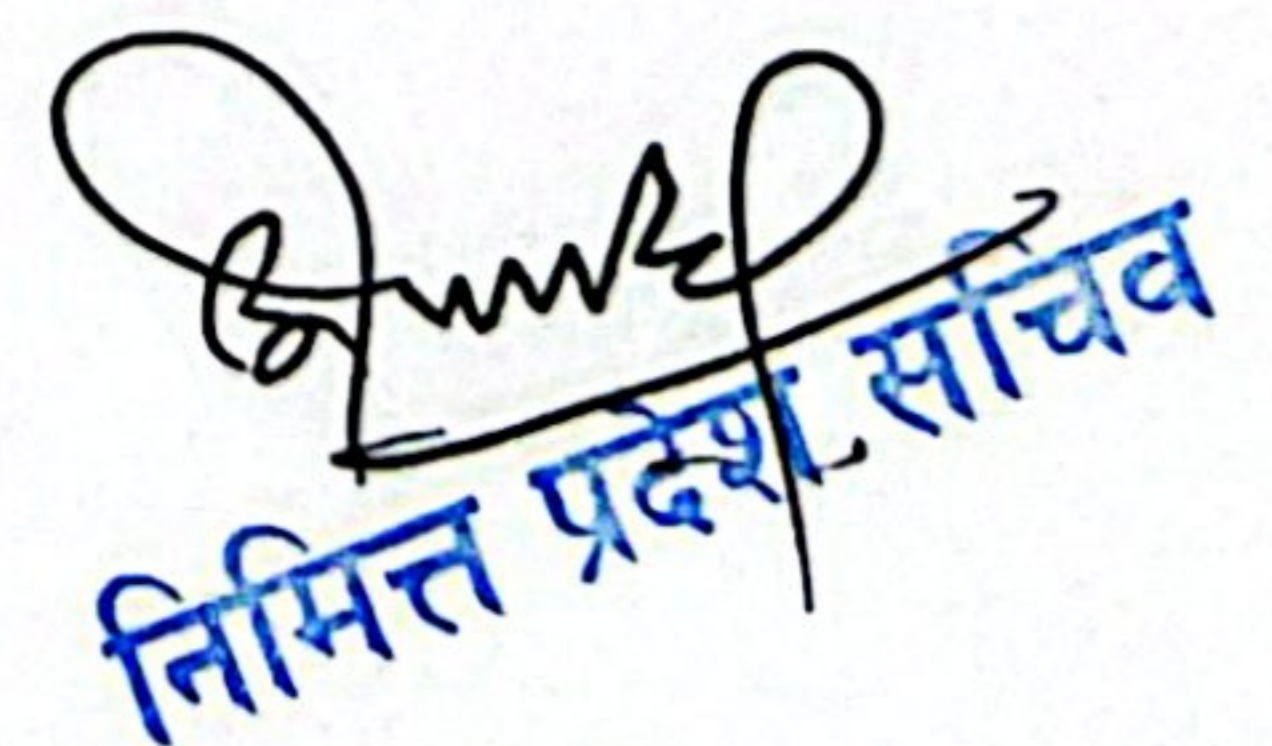 निमित्त प्रदेश सचिव